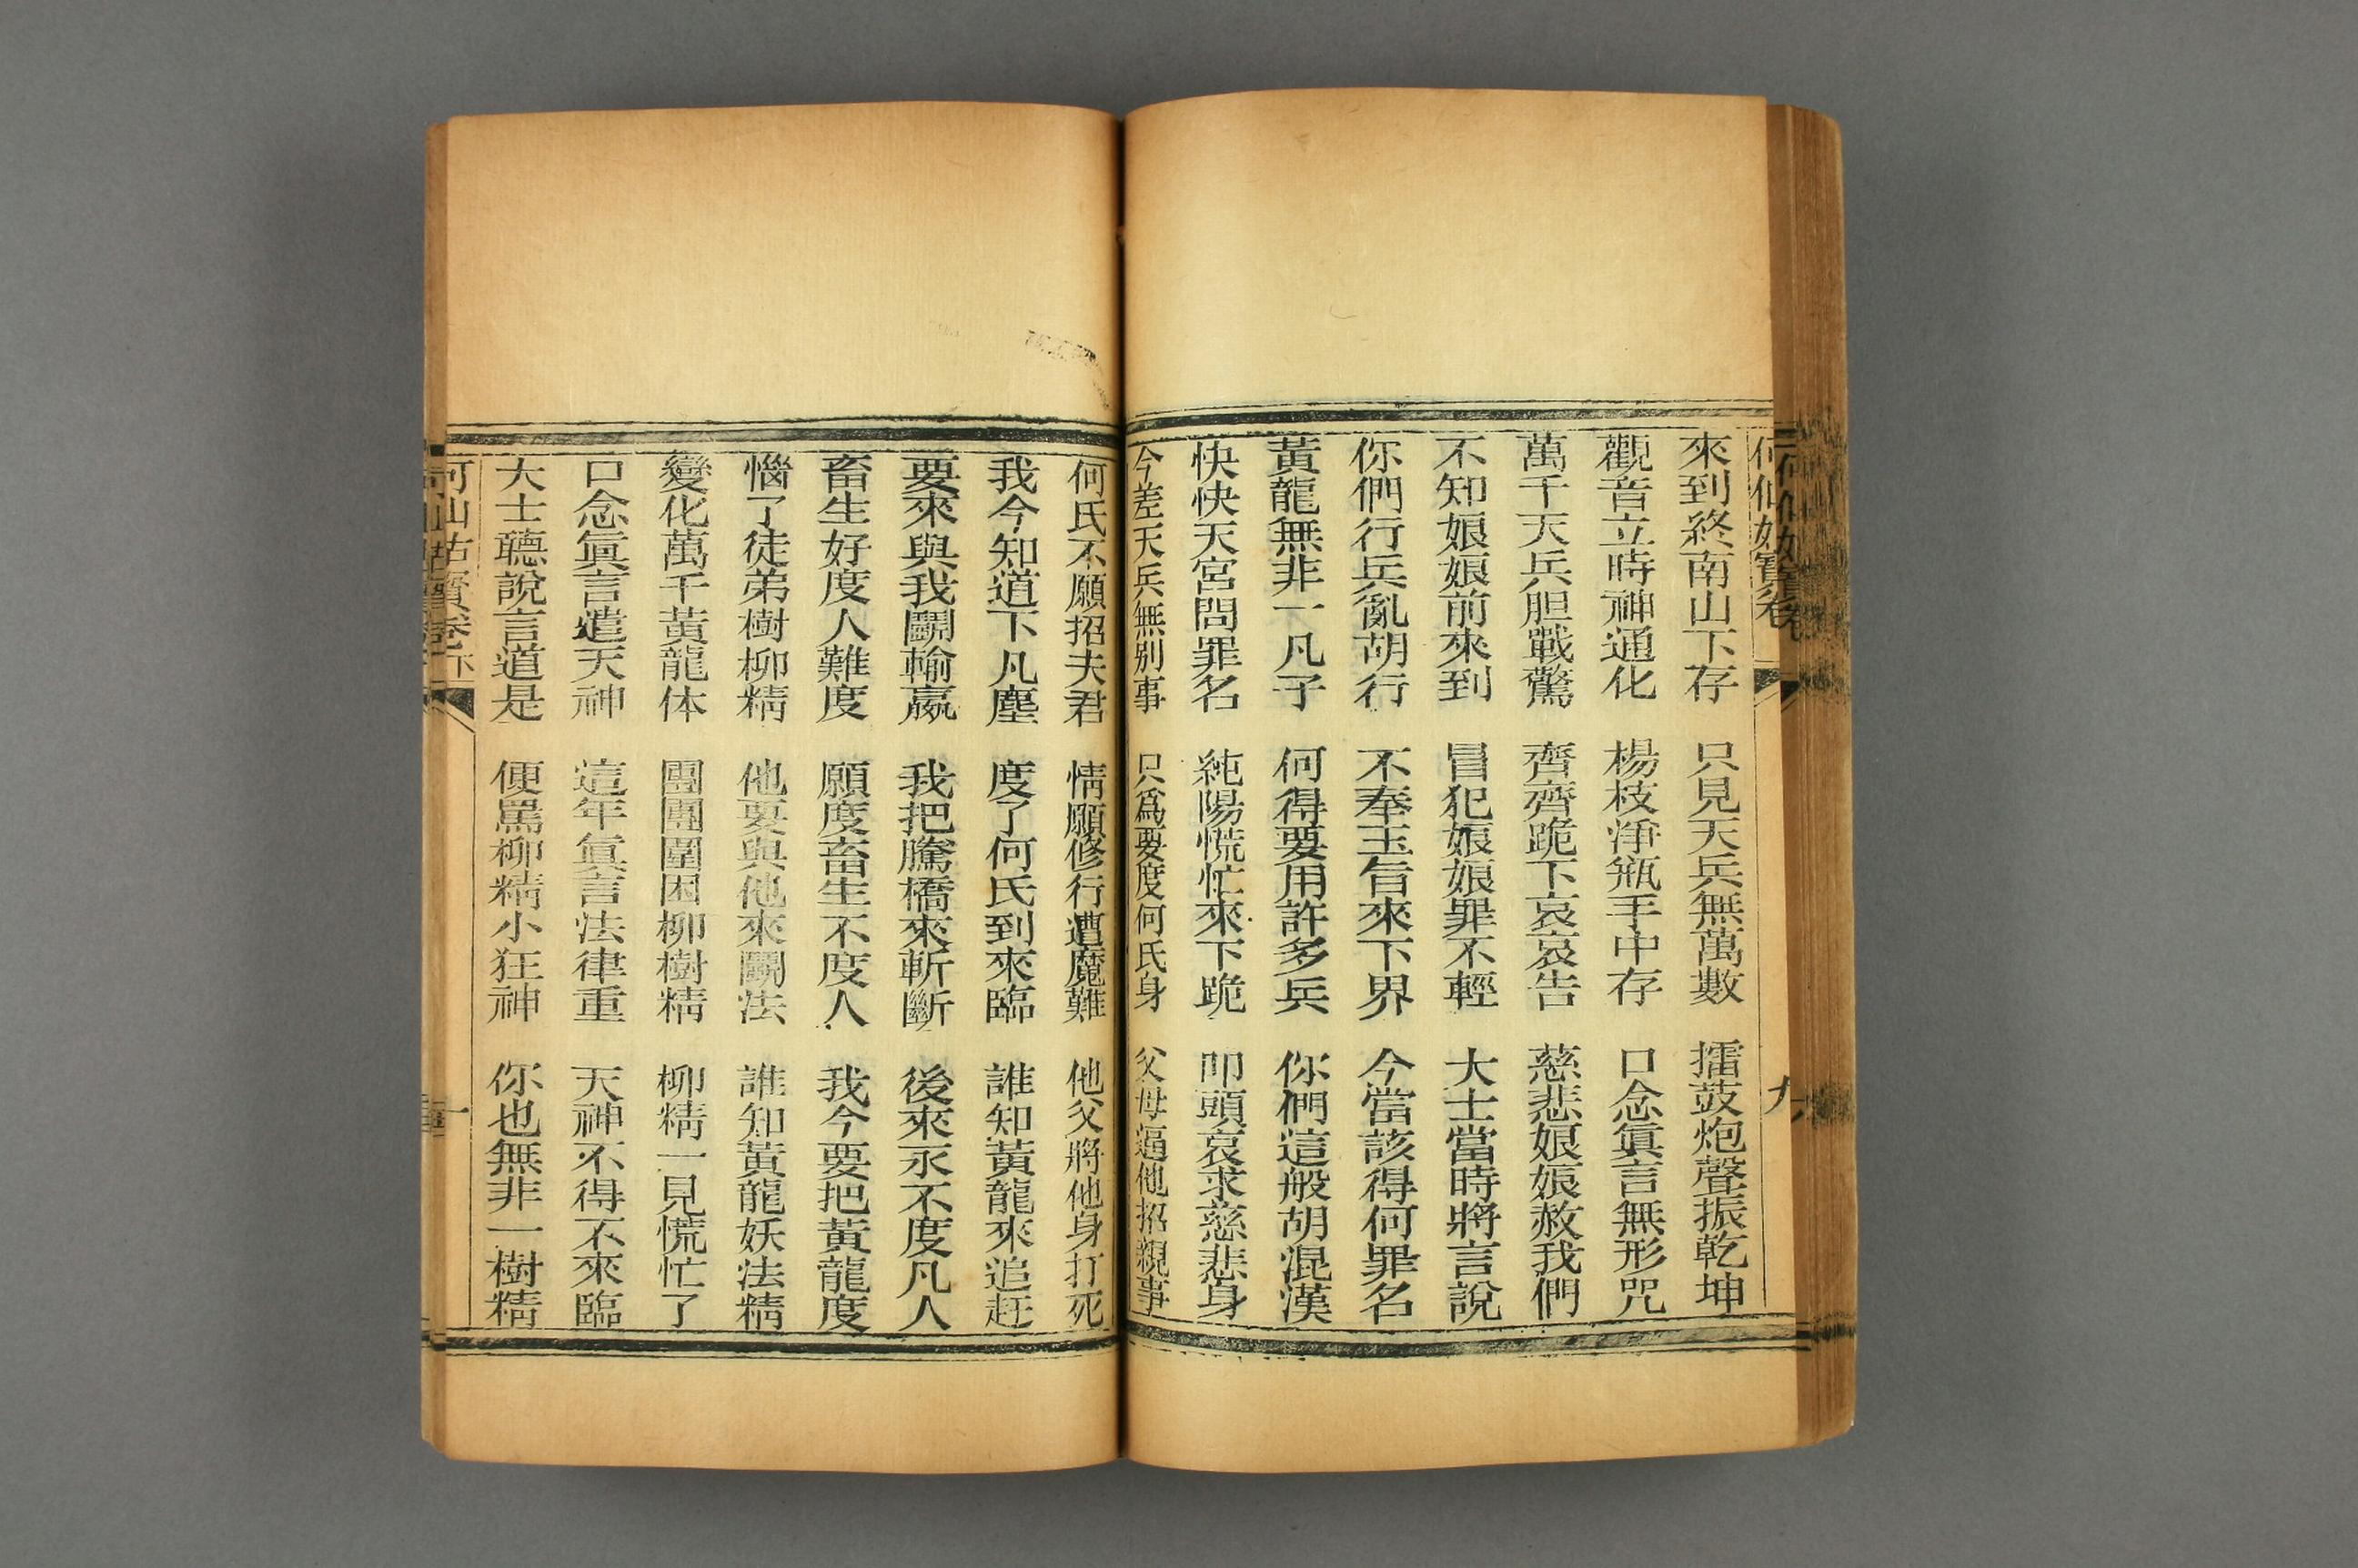 何仙姑寳卷
九
來到終南山下存　只見天兵無萬數　擂鼓炮聲振乾坤
觀音立時神通化　楊枝淨瓶手中存　口念眞言無形咒
萬千天兵胆戰驚　齊齊跪下哀哀告　慈悲娘娘赦我們
不知娘娘前來到　冒犯娘娘罪不輕　大士當時將言說
你們行兵亂胡行　不奉玉旨來下界　今當該得何罪名
黃龍無非一凡子　何得要用許多兵　你們這般胡混漢
快快天宮問罪名　純陽慌忙來下跪　叩頭哀求慈悲身
今差天兵無别事　只爲要度何氏身　父母逼他招親事
何氏不願招夫君　情願修行遭魔難　他父將他身打死
我今知道下凡塵　度了何氏到來臨　誰知黃龍來追赶
要來與我鬭輸嬴　我把騰橋來斬斷　後來永不度凡人
畜生好度人難度　願度畜生不度人　我今要把黃龍度
惱了徒弟樹柳精　他要與他來鬭法　誰知黃龍妖法精
變化萬千黃龍体　團團圍困柳樹精　柳精一見慌忙了
口念眞言遣天神　這年眞言法律重　天神不得不來臨
大士聽說言道是　便罵柳精小狂神　你也無非一樹精
何仙姑寳卷下